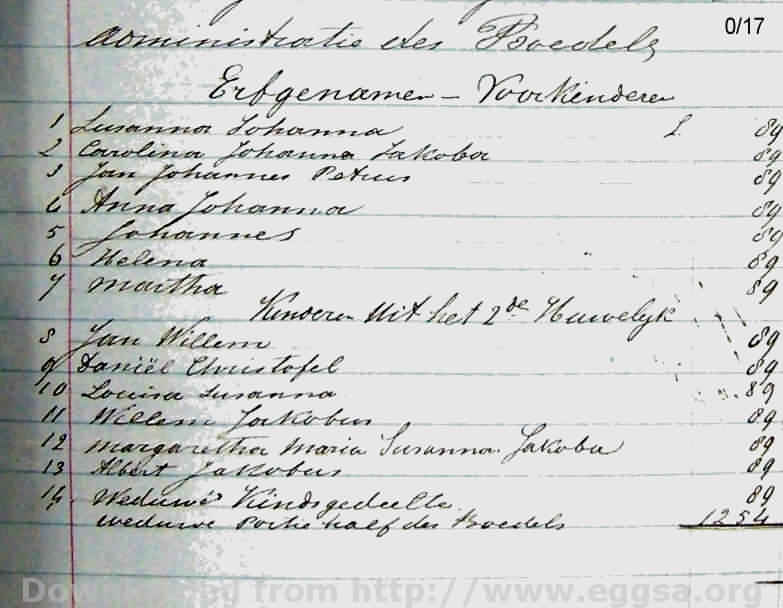 0/17
administratie des Boedels
Erfgenamen - Voorkinderen
1 Susanna Johanna £ 89
2 Carolina Johanna Jakoba 89
3 Jan Johannes Petrus 89
4 Anna Johanna 89
5 Johannes 89
6 Helena 89
7 Martha 89
Kinderen Uit het 2de Huwelijk
8 Jan Willem 89
9 Daniël Christofel 89
10 Louisa Susanna 89
11 Willem Jakobus 89
12 Margaretha Maria Susanna Jakoba 89
13 Albert Jakobus 89
14 Weduwé Kindsgedeelte 89
weduwe Portie half des Boedels 1254
from http://www.eggsa.org